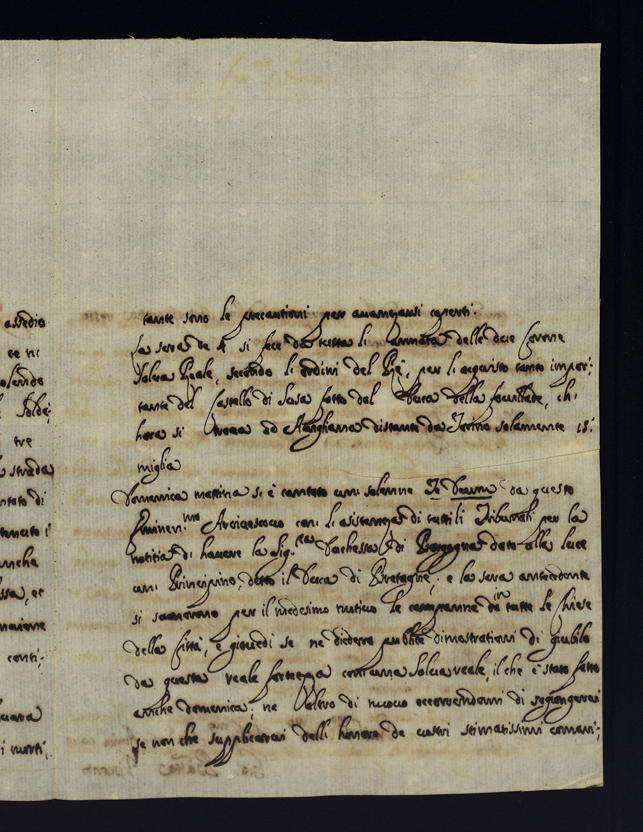 assedio
tante sono le precautioni per avanzarsi coperti.
La sera de 4 si fece da tutta l' Armata delle due Corone
Salva Reale, secondo li ordini del Rè, per l'acquisto tanto impor:
tante del Castello di Susa fatto dal Duca della feuillade, ch'
hora si trova ad Avigliana distante da Torino solamente 18:
miglia
Domenica mattina si è cantato un solenne Te Deum da questo
Eminen.mo Arcivescovo con l'assistenza di tutti li Tribunali per la
notitia di havere la Sig.ra Duchessa di Borgogna dato alla luce
un Principino, detto il Duca di Bretagne; e la sera antecedente
si suonarono per il medesimo motivo le campanne in tutte le Chiese
della Città, e giovedi se ne diedero publiche dimostrationi di giubilo
da questa reale fortezza con una Salva reale, il che è stato fatto
anche domenica; ne altro di nuovo occorrendomi di soggiongervi
se non che supplicarvi delli honore de vostri stimatissimi coman:
strada
conti: